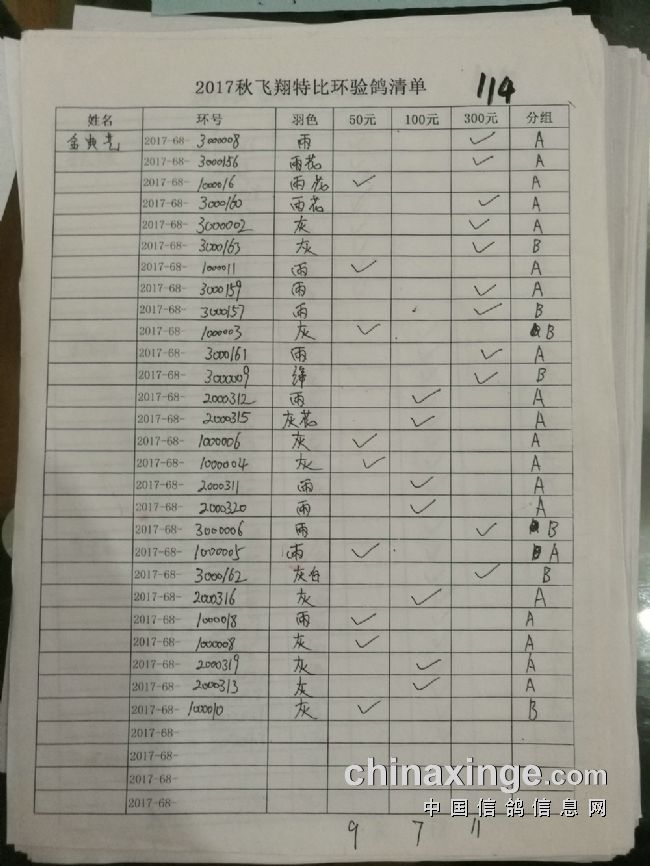 2017秋飞翔特比环验鸽清单 114
姓名 环号 羽色 50元 100元 300元 分组
2017-68- 3000008 雨 ✓ A
2017-68- 3000156 雨花 ✓ A
2017-68- 1000016 雨花 ✓ A
2017-68- 3000160 雨花 ✓ A
2017-68- 3000002 灰 ✓ A
2017-68- 3000163 灰 ✓ B
2017-68- 1000011 雨 ✓ A
2017-68- 3000159 雨 ✓ A
2017-68- 3000157 雨 ✓ B
2017-68- 1000003 灰 ✓ B
2017-68- 3000161 雨 ✓ A
2017-68- 3000009 绛 ✓ B
2017-68- 2000312 雨 ✓ A
2017-68- 2000315 灰花 ✓ A
2017-68- 1000006 灰 ✓ A
2017-68- 1000004 灰 ✓ A
2017-68- 2000311 雨 ✓ A
2017-68- 2000320 雨 ✓ A
2017-68- 3000006 雨 ✓ B
2017-68- 1000005 雨 ✓ A
2017-68- 3000162 灰白 ✓ B
2017-68- 2000316 灰 ✓ A
2017-68- 1000018 雨 ✓ A
2017-68- 1000008 灰 ✓ A
2017-68- 2000319 灰 ✓ A
2017-68- 2000313 灰 ✓ A
2017-68- 1000010 灰 ✓ B
2017-68-
2017-68-
2017-68-
2017-68-
9 7 11
chinaxinge.com
中国信鸽信息网